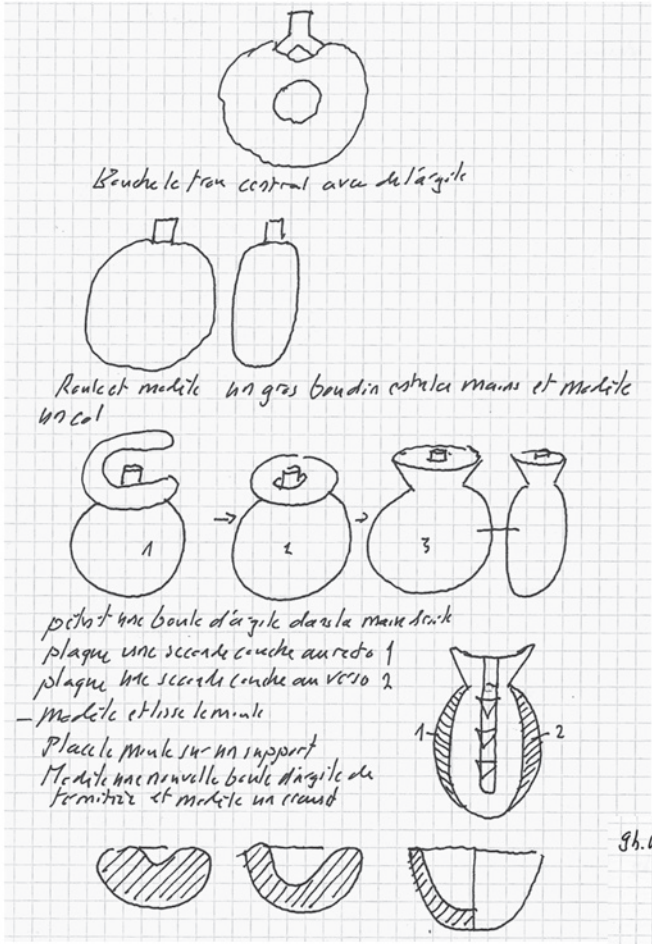 Bouche le trou central avec de l'argile
Roule et modèle un gros boudin entre les mains et modèle
un col
1
2
3
pétrit une boule d'argile dans la main droite
plaque une seconde couche au recto 1
plaque une seconde couche au verso 2
– modèle et lisse le moule
Place le moule sur un support
Modèle une nouvelle boule d'argile de
termitière et modèle un creuset
1
2